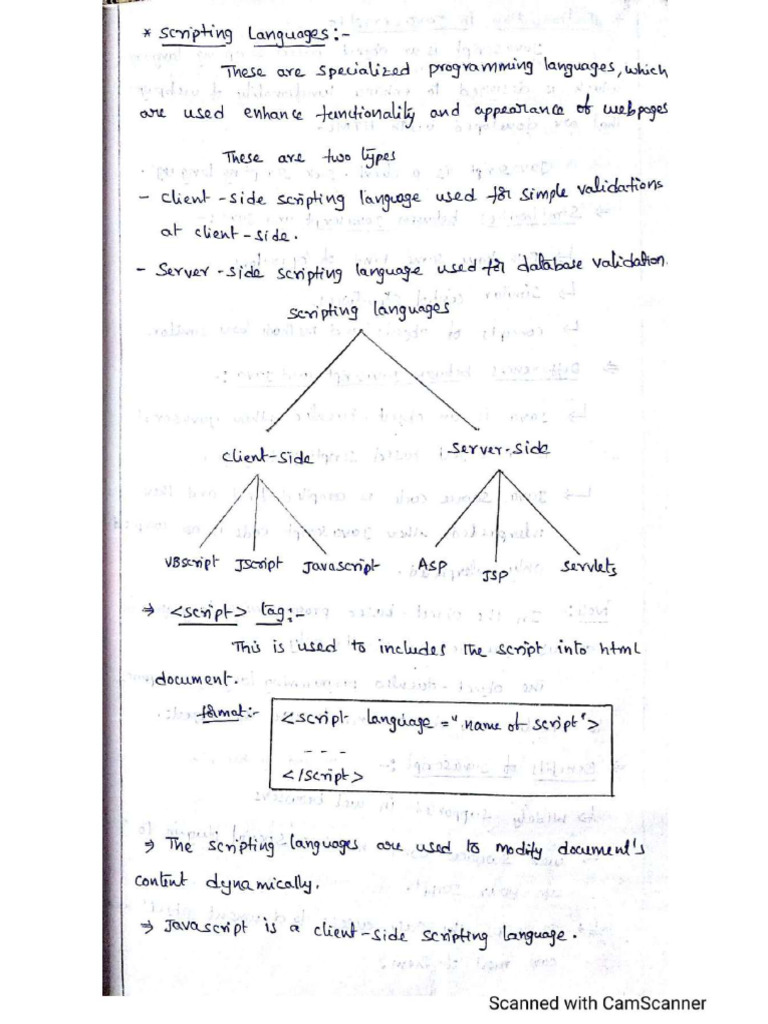 * Scripting Languages:-
These are specialized programming languages, which
are used enhance functionality and appearance of webpages
These are two types
- Client-side scripting language used for simple validations
at client-side.
- Server-side scripting language used for database validation.
Scripting languages
Client-side Server-side
VBscript JScript Javascript ASP JSP Servlets
⇒ <script> tag:-
This is used to includes the script into html
document.
format:-
<script language="name of script">
- - -
</script>
⇒ The scripting-languages are used to modify document's
content dynamically.
⇒ Javascript is a client-side scripting language.
Scanned with CamScanner